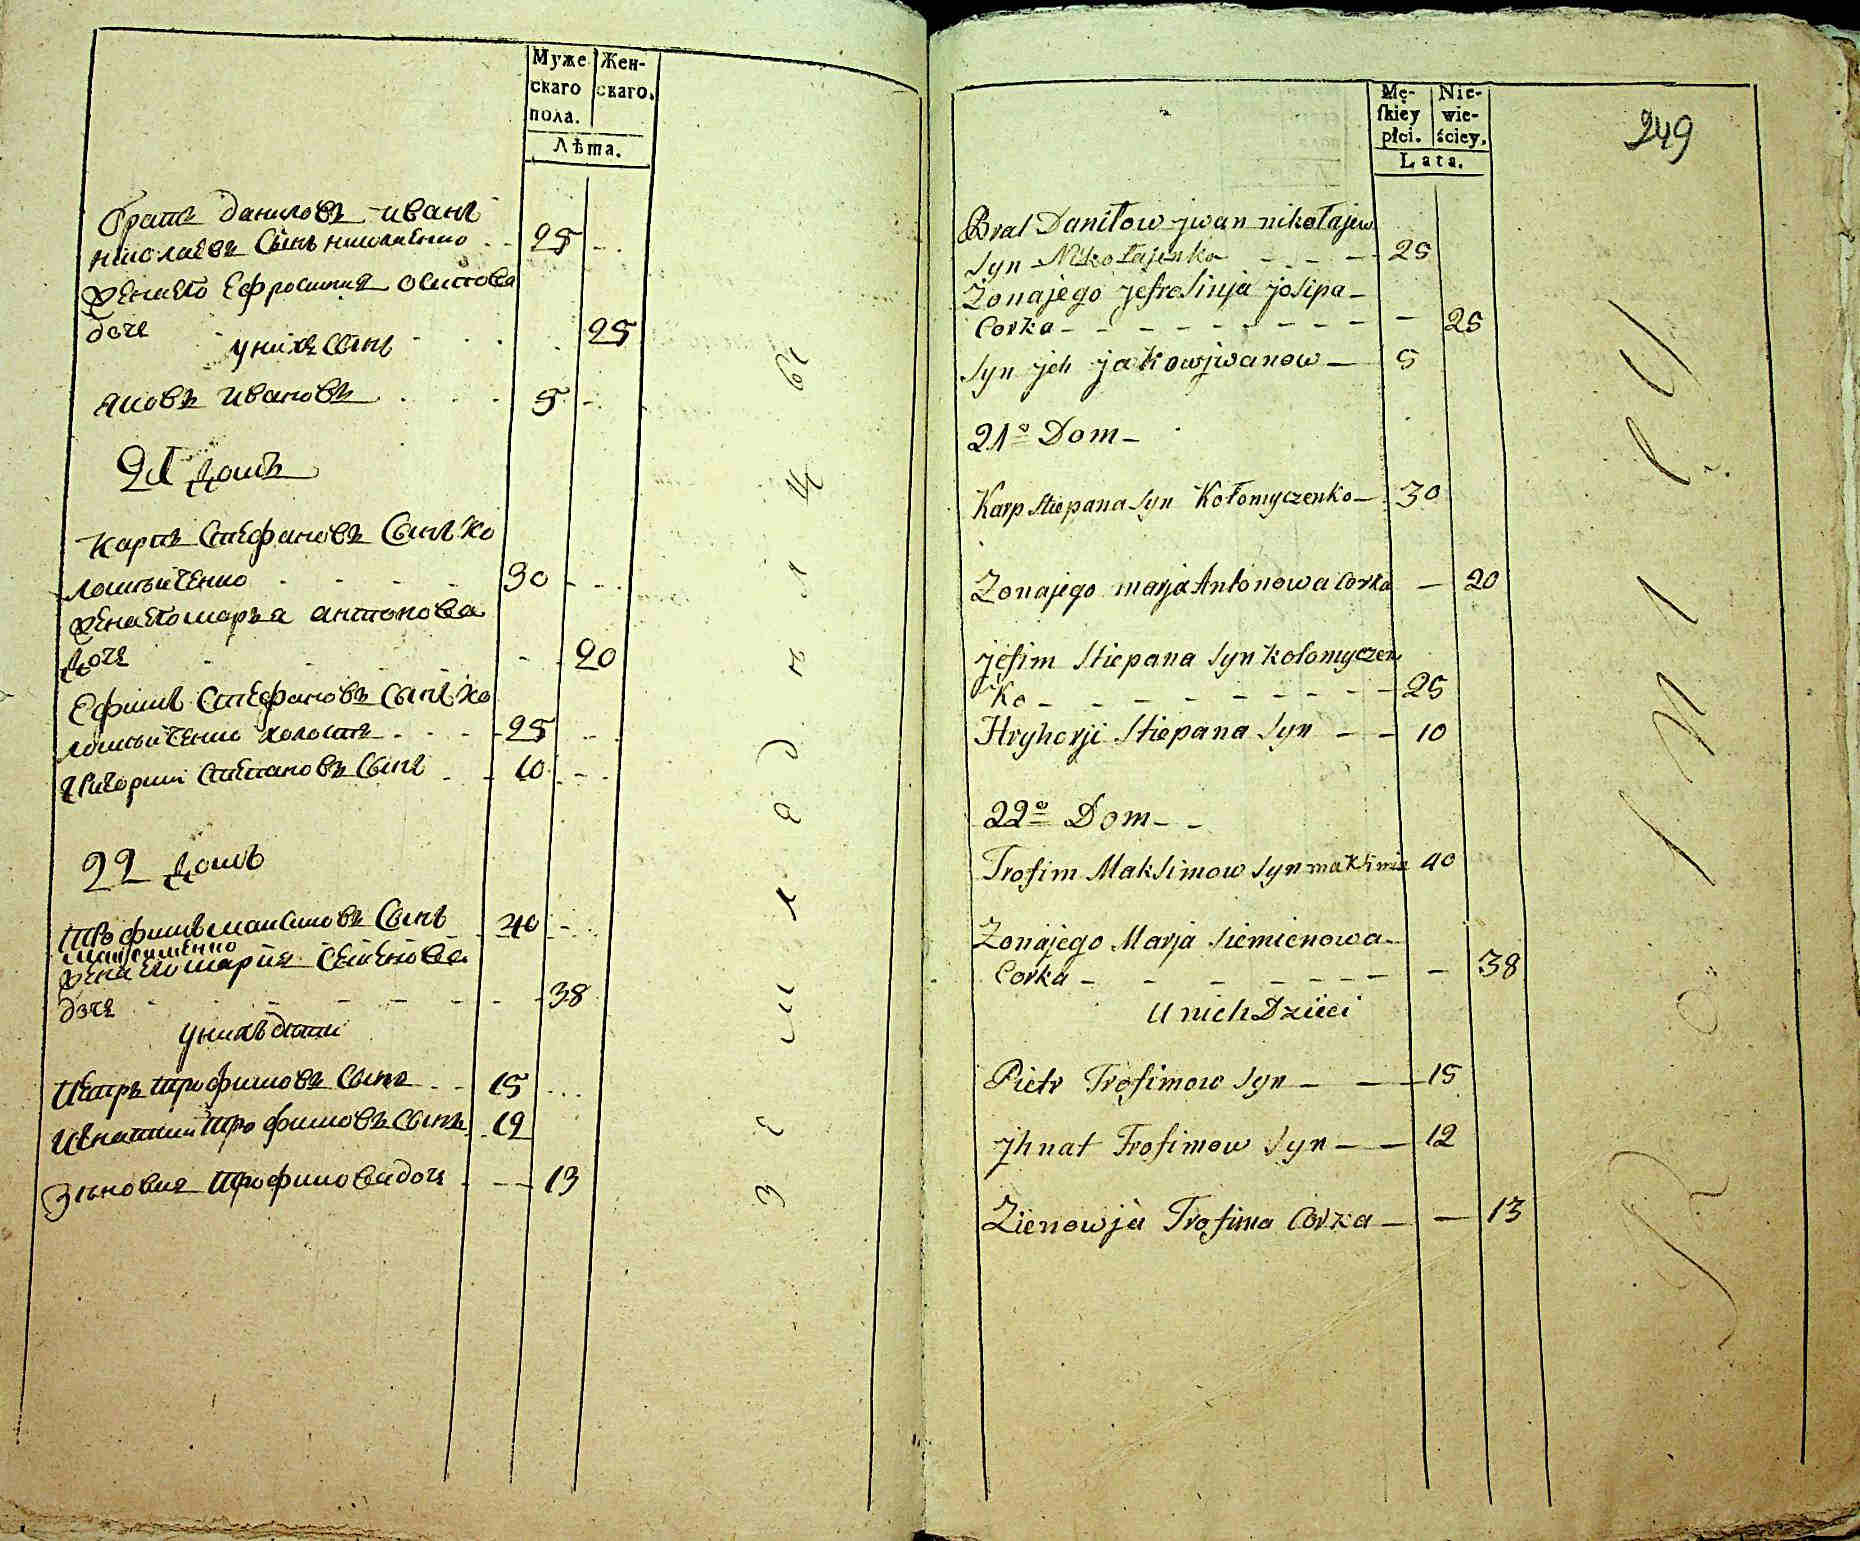 Муже
скаго
пола.
Жен-
скаго.
Лѣта.
братъ даниловъ иванъ
николаевъ сынъ николаенко 25
жена его ефросиния осипова
дочь 25
у нихъ сынъ
яковъ ивановъ 5
21 домъ
карпъ стефановъ сынъ ко
ломыиченко 30
жена его марья антонова
дочь 20
ефимъ стефановъ сынъ ко
ломыиченко холостъ 25
григории степановъ сынъ 10
22 домъ
трофимъ максимовъ сынъ 40
максименко
жена его мария семенова
дочь 38
у нихъ дѣти
петръ трофимовъ сынъ 15
игнатии трофимовъ сынъ 12
зѣновия трофимова дочь 13
Mę-
skiey
płci.
Nie-
wie-
ściey.
Lata.
249
Brat Daniłow jwan nikołajew
syn Nikołajenko 25
Zonajego jefrosinja josipa
Corka 25
syn jch jakow jwanow 5
21º Dom
Karp Stiepana syn Kołomyczenko 30
Zonajego marja Antonowa Corka 20
jefim Stiepana syn kołomyczen
ko 25
Hryhorji Stiepana syn 10
22º Dom
Trofim Maksimow syn 40
Zonajego Marja siemienowa
Corka 38
U nich Dzieci
Pietr Trofimow syn 15
jhnat Trofimow syn 12
Zienowja Trofima Corka 13